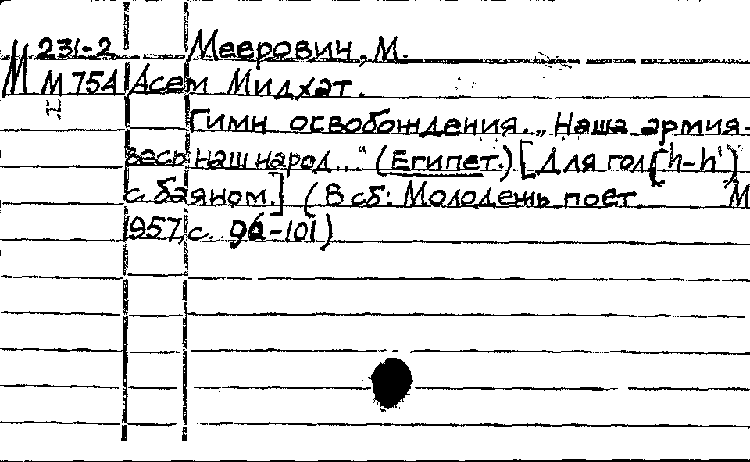 М 231-2 Меерович, М.
М 754 Асем Мидхат.
Н Гимн освобождения. „Наша армия-
весь наш народ..." (Египет.) [Для гол. (h-h')
с баяном.] (В сб: Молодежь поет. М
1957, с. 98-101)